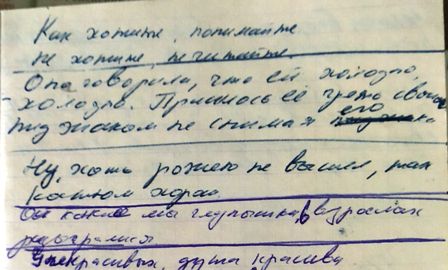 Как хотите, понимайте
не хотите, не читайте.
Она говорила, что ей холодно,
холодно. Пришлось её греть своим
пиджаком не снимая его
Ну, хоть рожею не вышел, так
костюм хорош
От какие мы глупышки, взрослых
разыгрался
У некрасивых, душа красива